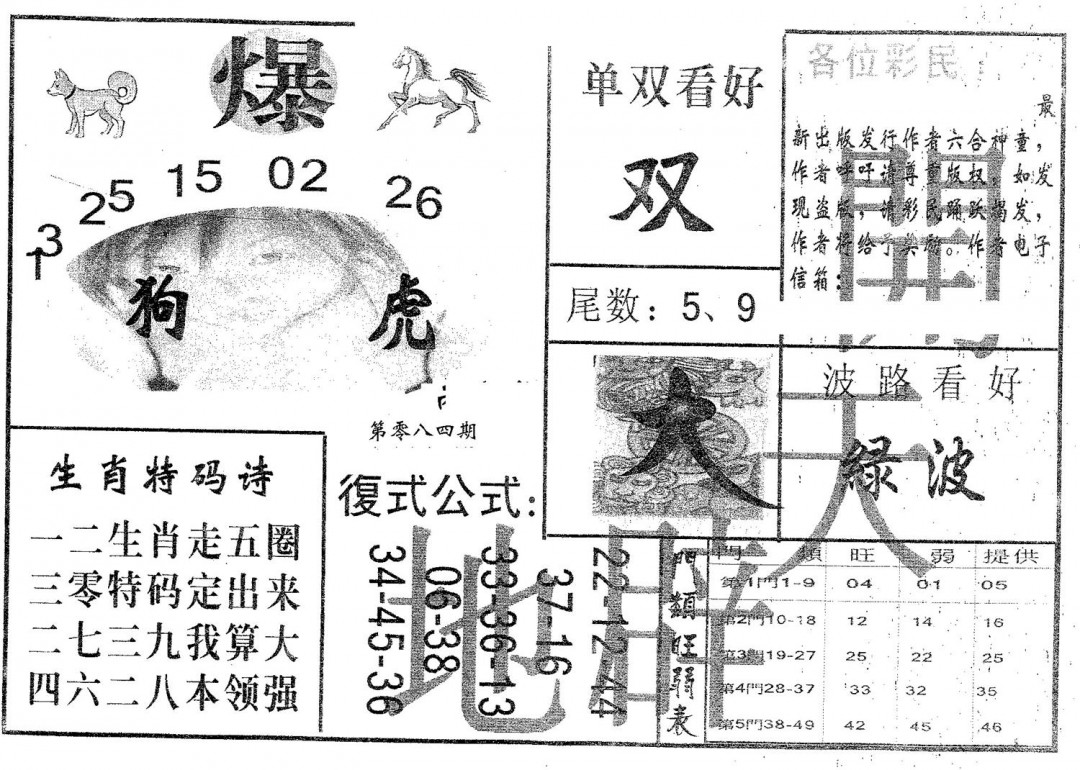 爆
13 25 15 02 26
狗 虎
第零八四期
单双看好
双
尾数：5、9
大
各位彩民：
最
新出版发行作者六合神童，
作者呼吁请尊重版权，如发
现盗版，请彩民踊跃揭发，
作者将给予奖励。作者电子
信箱：
波路看好
绿波
生肖特码诗
一二生肖走五圈
三零特码定出来
二七三九我算大
四六二八本领强
復式公式：
34-45-36
06-38
33-36-13
37-16
22-12-44
門類旺弱表
門 類 旺 弱 提供
第1門1-9 04 01 05
第2門10-18 12 14 16
第3門19-27 25 22 25
第4門28-37 33 32 35
第5門38-49 42 45 46
天
地